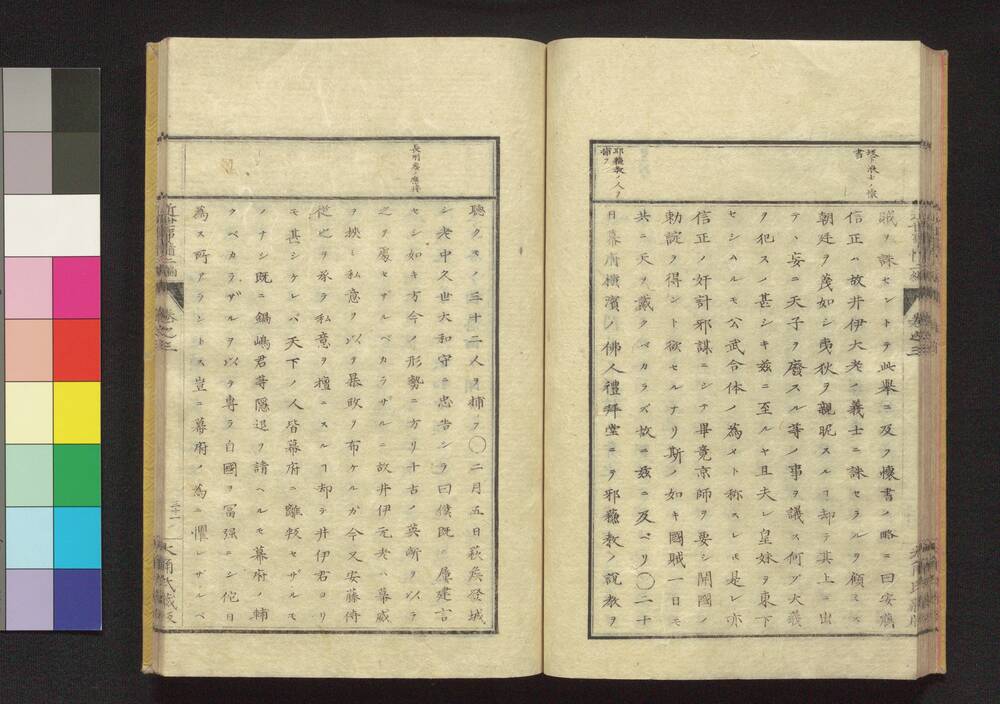 坂下浪士ノ懐
書
賊ヲ誅セントテ此擧ニ及フ懐書ノ略ニ曰安藤
信正ハ故井伊大老ノ義士ニ誅セラルヲ顧ミス
朝廷ヲ蔑如シ夷狄ヲ親昵スルヿ却テ其上ニ出
テ、妄ニ天子ヲ廢スル等ノ事ヲ議ス何ゾ大義
ヲ犯スノ甚シキ茲ニ至ルヤ且夫レ皇妹ヲ東下
セシムルモ公武合体ノ為メト称スレ𪜈是レ亦
信正ノ奸計邪謀ニシテ畢竟京師ヲ要シ開國ノ
勅諚ヲ得ント欲セルナリ斯ノ如キ國賊一日モ
共ニ天ヲ戴クベカラズ故ニ茲ニ及ベリ〇二十
邪蘓教ノ人ヲ
捕フ
日幕府横濱ノ佛人禮拜堂ニテ邪蘓教ノ説教ヲ
近世事情二編
巻之三
聴クモノ三十二人ヲ捕フ〇二月五日萩矦登城
シ老中久世大和守ニ忠告シテ曰僕既ニ屢建言
長州矦ノ應接
セシ如キ方今ノ形勢ニ方リ千古ノ英断ヲ以テ
之ヲ處セザルベカラザルニ故井伊元老ハ幕威
ヲ挾ミ私意ヲ以テ暴政ヲ布ケルガ今又安藤侍
從之ヲ承テ私意ヲ擅ニスルヿ却テ井伊君ヨリ
モ甚シケレバ天下ノ人皆幕府ニ離頖セザルモ
ノナシ既ニ鍋嶋君等隠退ヲ請ヘルモ幕府ノ輔
クベカラザルヲ以テ専ラ自國ヲ冨强ニシ佗日
為ス所アラントス豈ニ幕府ノ為ニ懼レザルベ
近世事情二編
巻之三